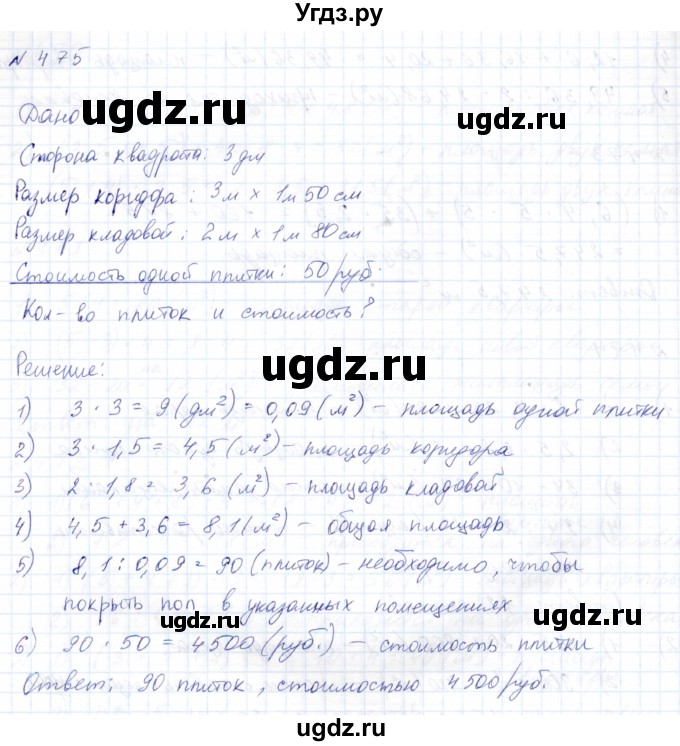 Угдз.ру
№ 475
Дано
ugdz.ru
Сторона квадрата: 3 дм
Размер коридора: 3 м × 1 м 50 см
Размер кладовой: 2 м × 1 м 80 см
ugdz.ru
Стоимость одной плитки: 50 руб.
Кол-во плиток и стоимость?
ugdz.ru
Решение:
1) 3 · 3 = 9 (дм²) = 0,09 (м²) – площадь одной плитки
2) 3 · 1,5 = 4,5 (м²) – площадь коридора
ugdz.ru
3) 2 · 1,8 = 3,6 (м²) – площадь кладовой
4) 4,5 + 3,6 = 8,1 (м²) – общая площадь
ugdz.ru
5) 8,1 : 0,09 = 90 (плиток) – необходимо, чтобы
покрыть пол в указанных помещениях
ugdz.ru ugdz.ru
6) 90 · 50 = 4500 (руб.) – стоимость плитки
Ответ: 90 плиток, стоимостью 4500 руб.
ugdz.ru